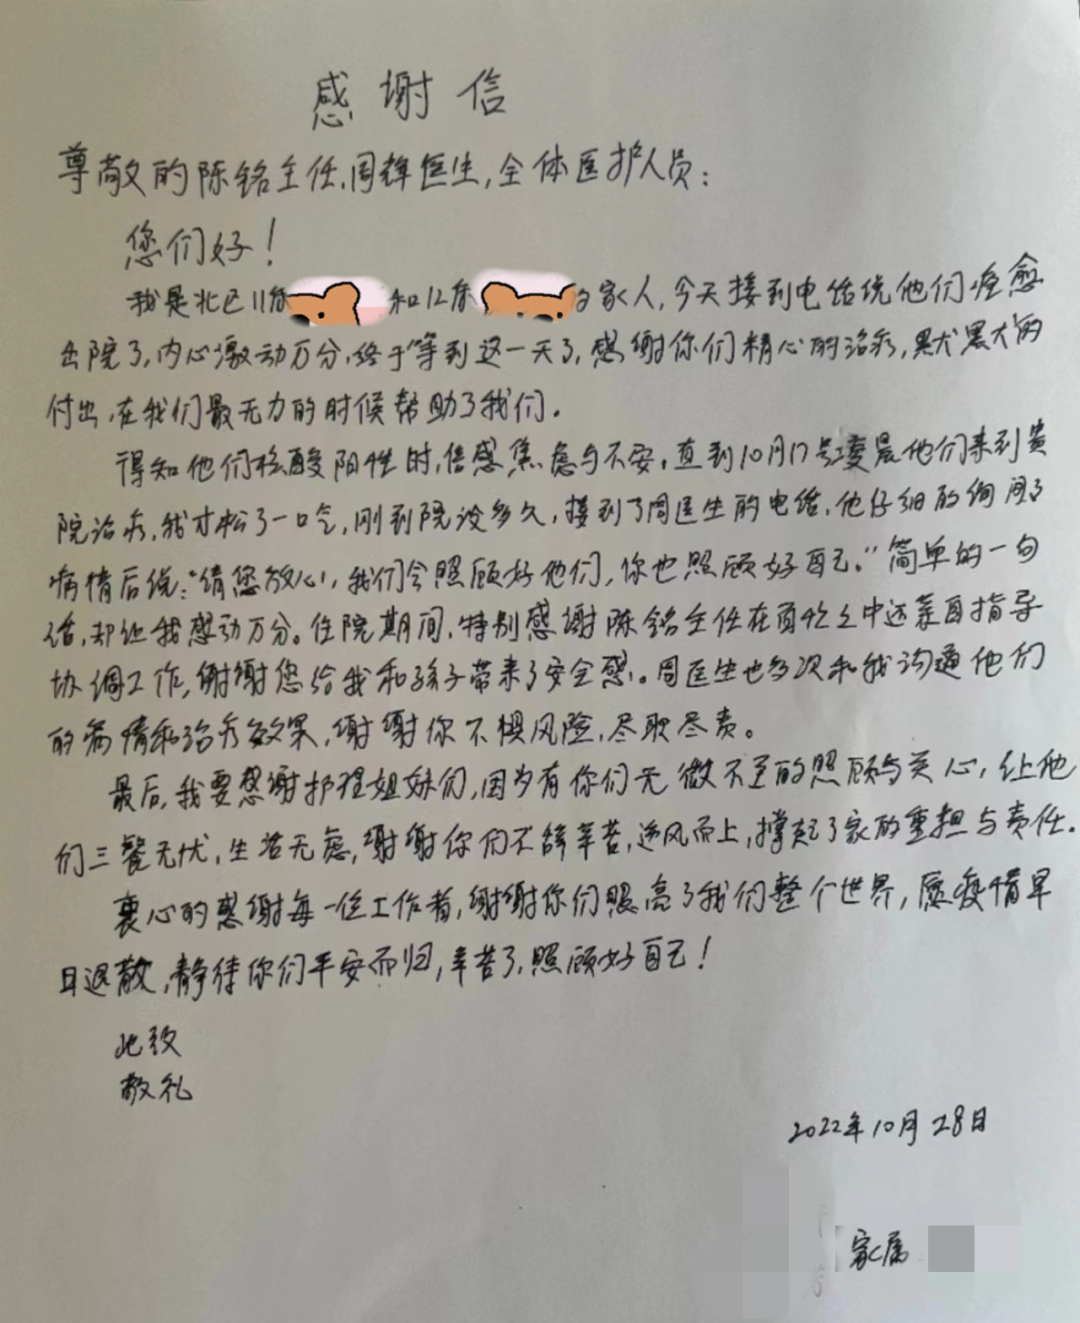 感谢信
尊敬的陈铭主任,周锋医生,全体医护人员:
您们好!
我是北区11床 和12床 的家人,今天接到电话说他们痊愈
出院了,内心激动万分,终于等到这一天了,感谢你们精心的治疗,默默的
付出,在我们最无力的时候帮助了我们。
得知他们核酸阳性时,倍感焦虑与不安,直到10月17号凌晨他们来到贵
院治疗,我才松了一口气,刚到院没多久,接到了周医生的电话,他仔细的询问了
病情后说:"请您放心,我们会照顾好他们,你也照顾好自己。"简单的一句
话,却让我感动万分。住院期间,特别感谢陈铭主任在百忙之中还亲自指导
协调工作,谢谢您给我和孩子带来了安全感。周医生也多次和我沟通他们
的病情和治疗效果,谢谢你不惧风险,尽职尽责。
最后,我要感谢护理姐妹们,因为有你们无微不至的照顾与关心,让他
们三餐无忧,生活无虑,谢谢你们不辞辛苦,逆风而上,撑起了家的重担与责任.
衷心的感谢每一位工作者,谢谢你们照亮了我们整个世界,愿疫情早
日退散,静待你们平安而归,辛苦了,照顾好自己!
此致
敬礼
2022年10月28日
家属